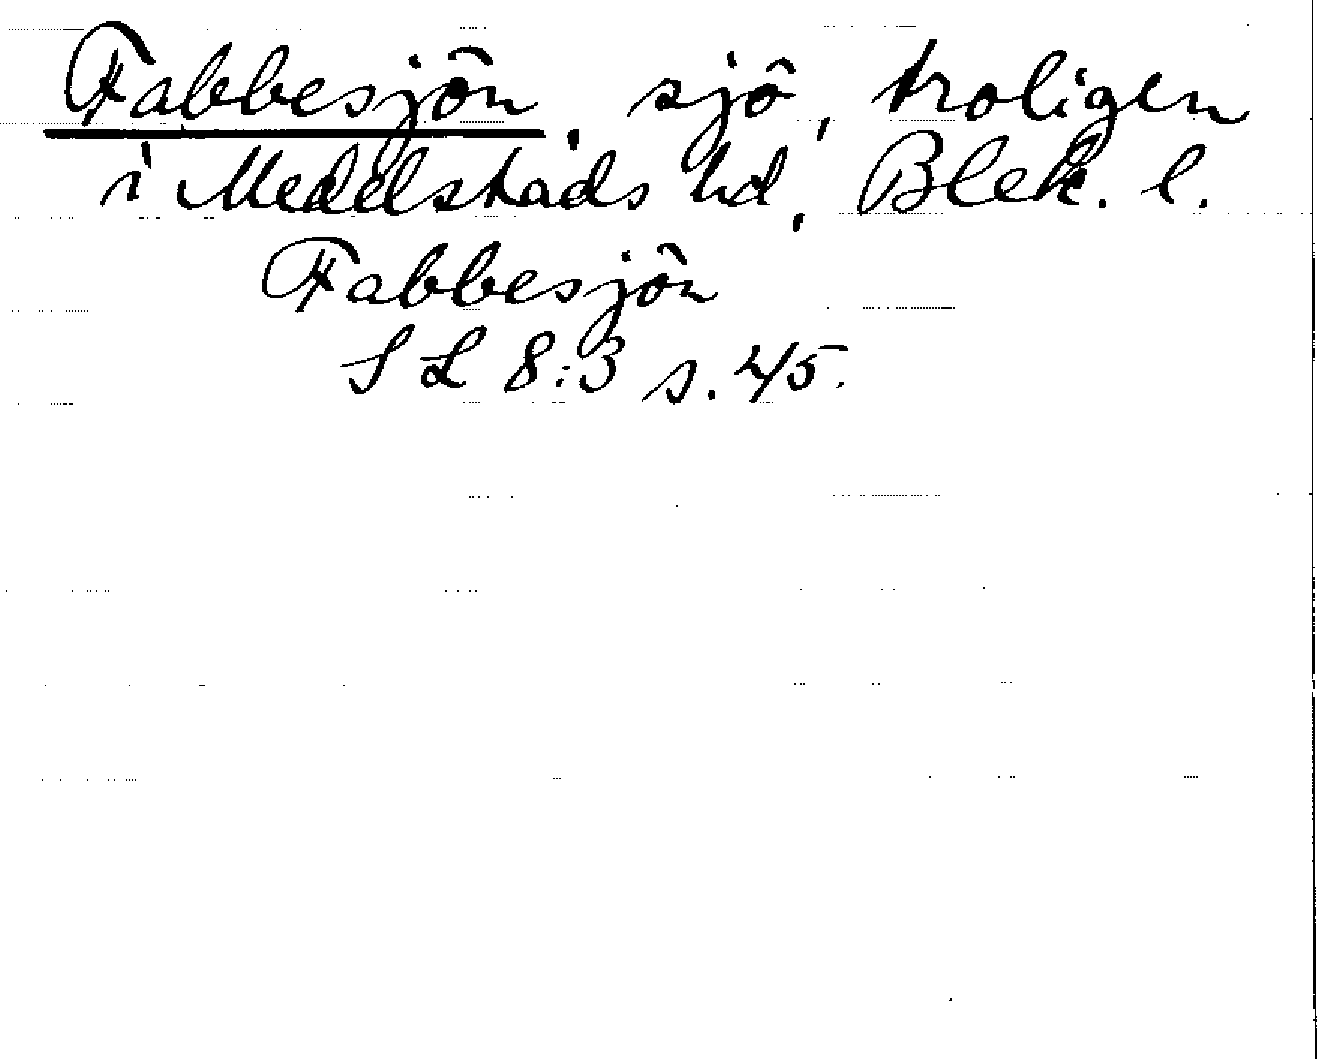 Fabbesjön, sjö, troligen
i Medelstads hd, Blek. l.
Fabbesjön
S L 8:3 s. 45.